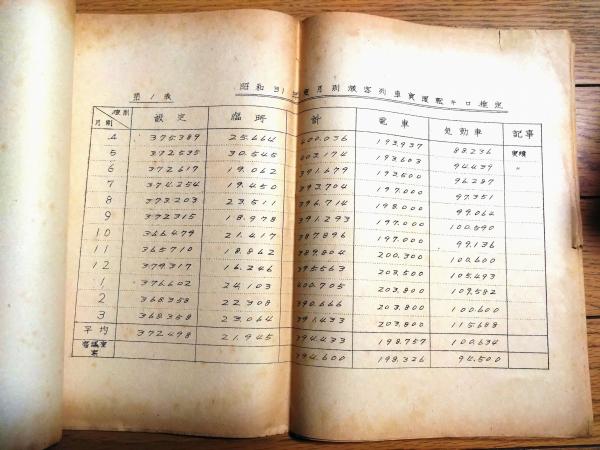 第1表 昭和31年度月別旅客列車実運転キロ推定
種別 月別 設定 臨時 計 電車 気動車 記事
4 375.389 25.664 400.036 193.937 88.236 実績
5 372.535 30.545 403.174 193.603 94.439 〃
6 372.617 19.062 391.679 193.600 96.287
7 374.254 19.450 393.704 197.000 97.351
8 373.203 23.511 396.714 198.000 99.064
9 372.315 18.978 391.293 197.000 100.590
10 366.479 21.417 387.896 197.000 99.136
11 365.710 18.862 389.804 200.300 100.600
12 379.317 16.246 395.563 203.500 105.493
1 376.602 24.103 400.705 203.800 109.582
2 368.358 22.308 390.666 203.800 100.600
3 368.358 23.064 391.433 203.800 115.688
平均 372.498 21.945 394.433 198.757 100.634
審議室案 394.600 198.326 94.500